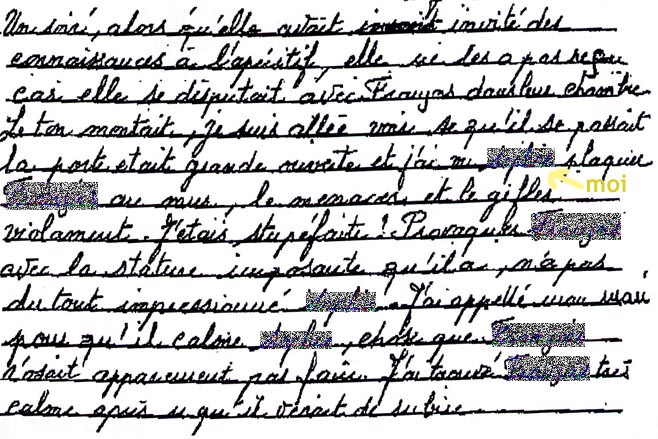 Un soiré, alors qu'elle avait invité des
connaissances à l'apéritif, elle ne les a pas reçu
car elle se disputait avec François dans leur chambre
Le ton montait, je suis allée voir se qu'il se passait
la porte etait grande ouverte et j'ai vu plaquer
moi
au mur, le menacer, et le gifler
violament. J'étais stupéfaite ! Provoquer
avec la stature imposante qu'il a, n'a pas
du tout impressionné . J'ai appellé mon mari
pour qu'il calme , chose que
n'osait apparement pas faire. J'ai trouvé très
calme après ce qu'il venait de subire